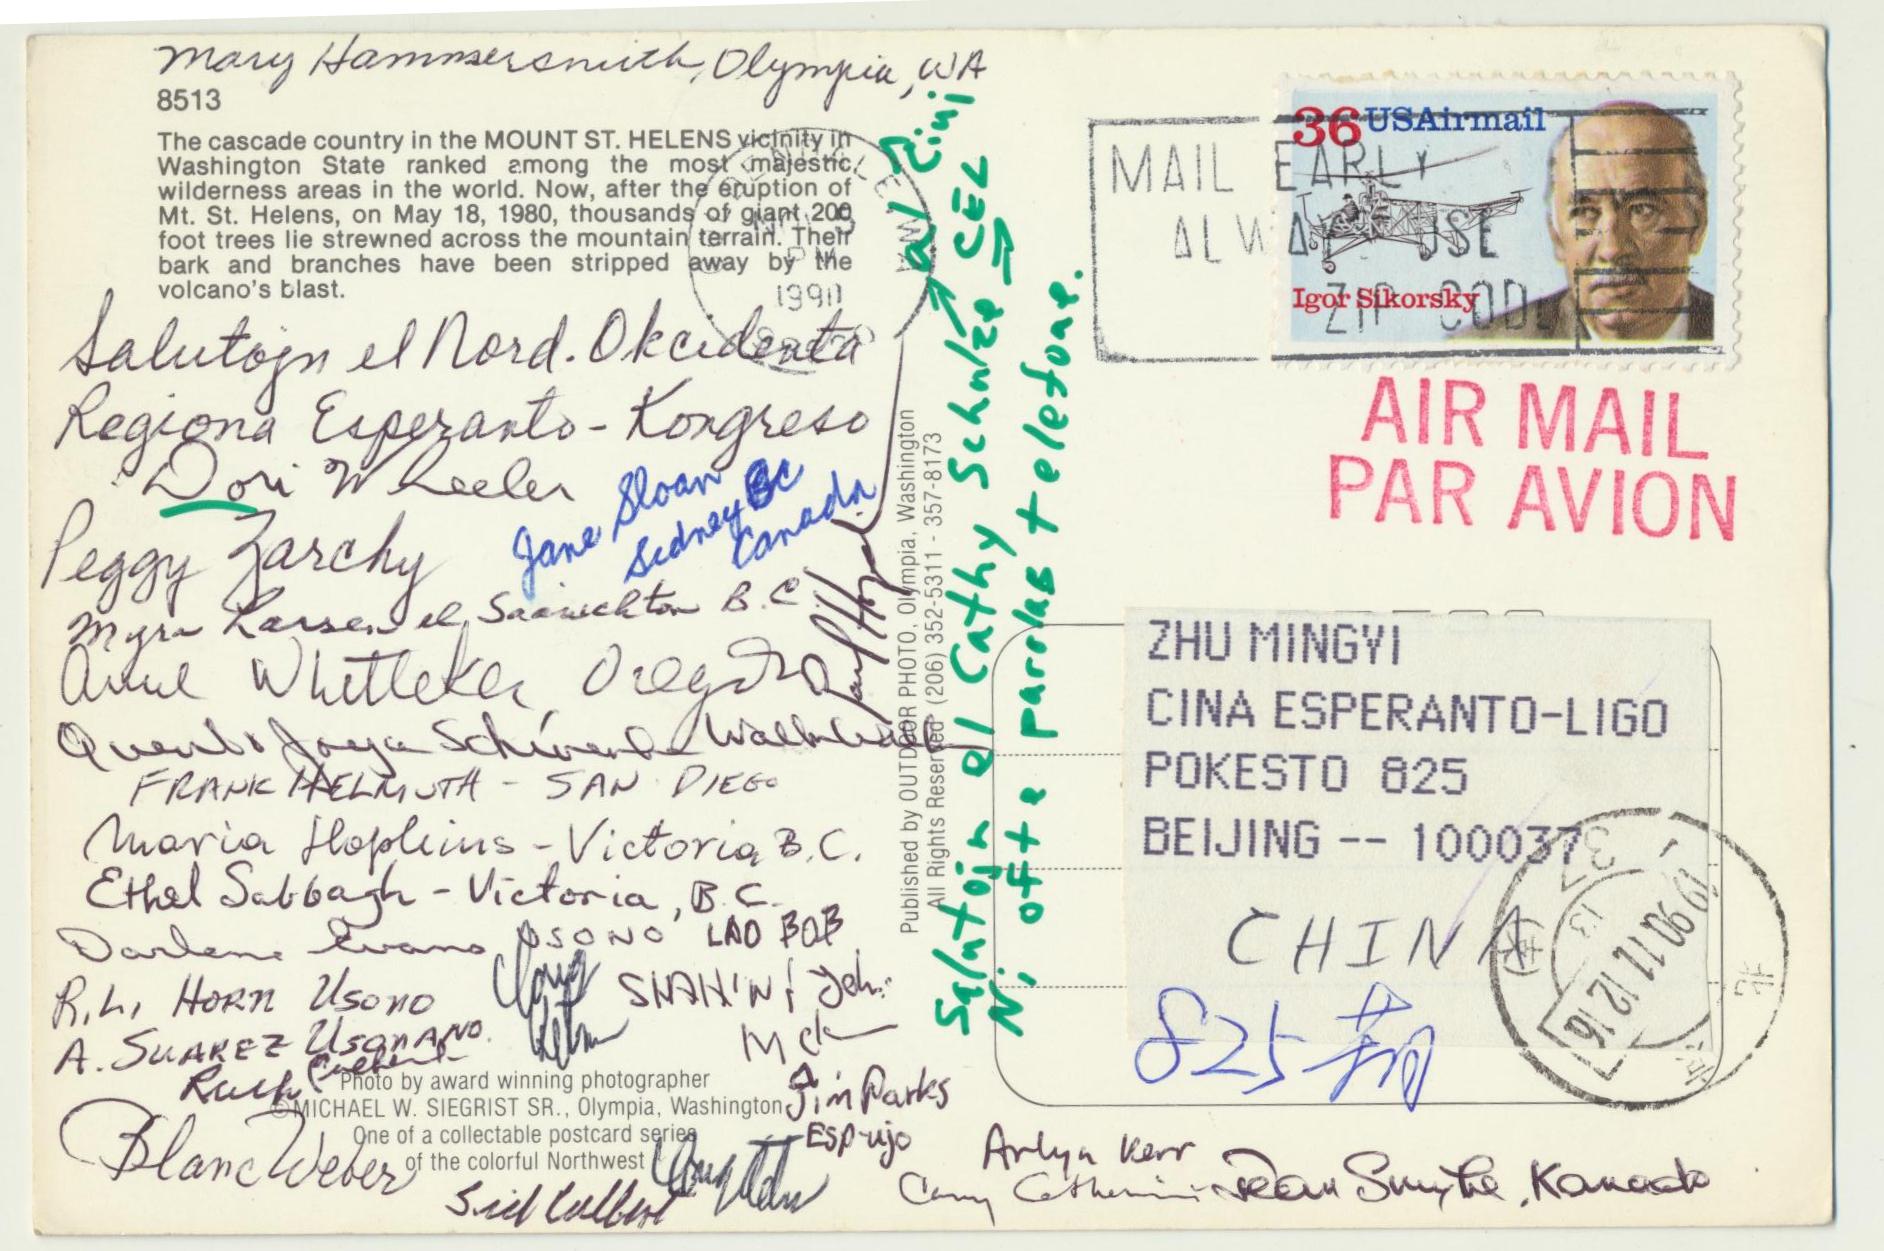 Mary Hammersmith, Olympia, WA
8513
The cascade country in the MOUNT ST. HELENS vicinity in
Washington State ranked among the most majestic
wilderness areas in the world. Now, after the eruption of
Mt. St. Helens, on May 18, 1980, thousands of giant 200
foot trees lie strewned across the mountain terrain. Their
bark and branches have been stripped away by the
volcano's blast.
Salutojn el Nord. Okcidenta
Regiona Esperanto-Kongreso
Dori Wheeler
Jane Sloan
Sidney BC
Canada
Peggy Zarchy
Myra Larsen el Saanichton B.C.
Whitteker Oregon
FRANK HELMUTH - SAN DIEGO
Maria Hopkins - Victoria, B.C.
Ethel Sabbagh - Victoria, B.C.
Darlene Evans
USONO LAO BOB
R.L. HORN USONO
A. SUAREZ USONANO
Ruth
Photo by award winning photographer
©MICHAEL W. SIEGRIST SR., Olympia, Washington
One of a collectable postcard series
of the colorful Northwest
Jim Parks
ESP-ujo
Blanc Weber
Arlyn Kerr
Jean Smythe, Kanado
Published by OUTDOOR PHOTO, Olympia, Washington
All Rights Reserved (206) 352-5311 - 357-8173
Salutojn el Cathy Schulze
al Cini
CEL
Ni ofte parolas telefone.
MAIL EARLY
ALWAYS USE
ZIP CODE
PM
1990
36 USAirmail
Igor Sikorsky
AIR MAIL
PAR AVION
ZHU MINGYI
CINA ESPERANTO-LIGO
POKESTO 825
BEIJING -- 100037
CHINA
1990 11 12 16
北
京